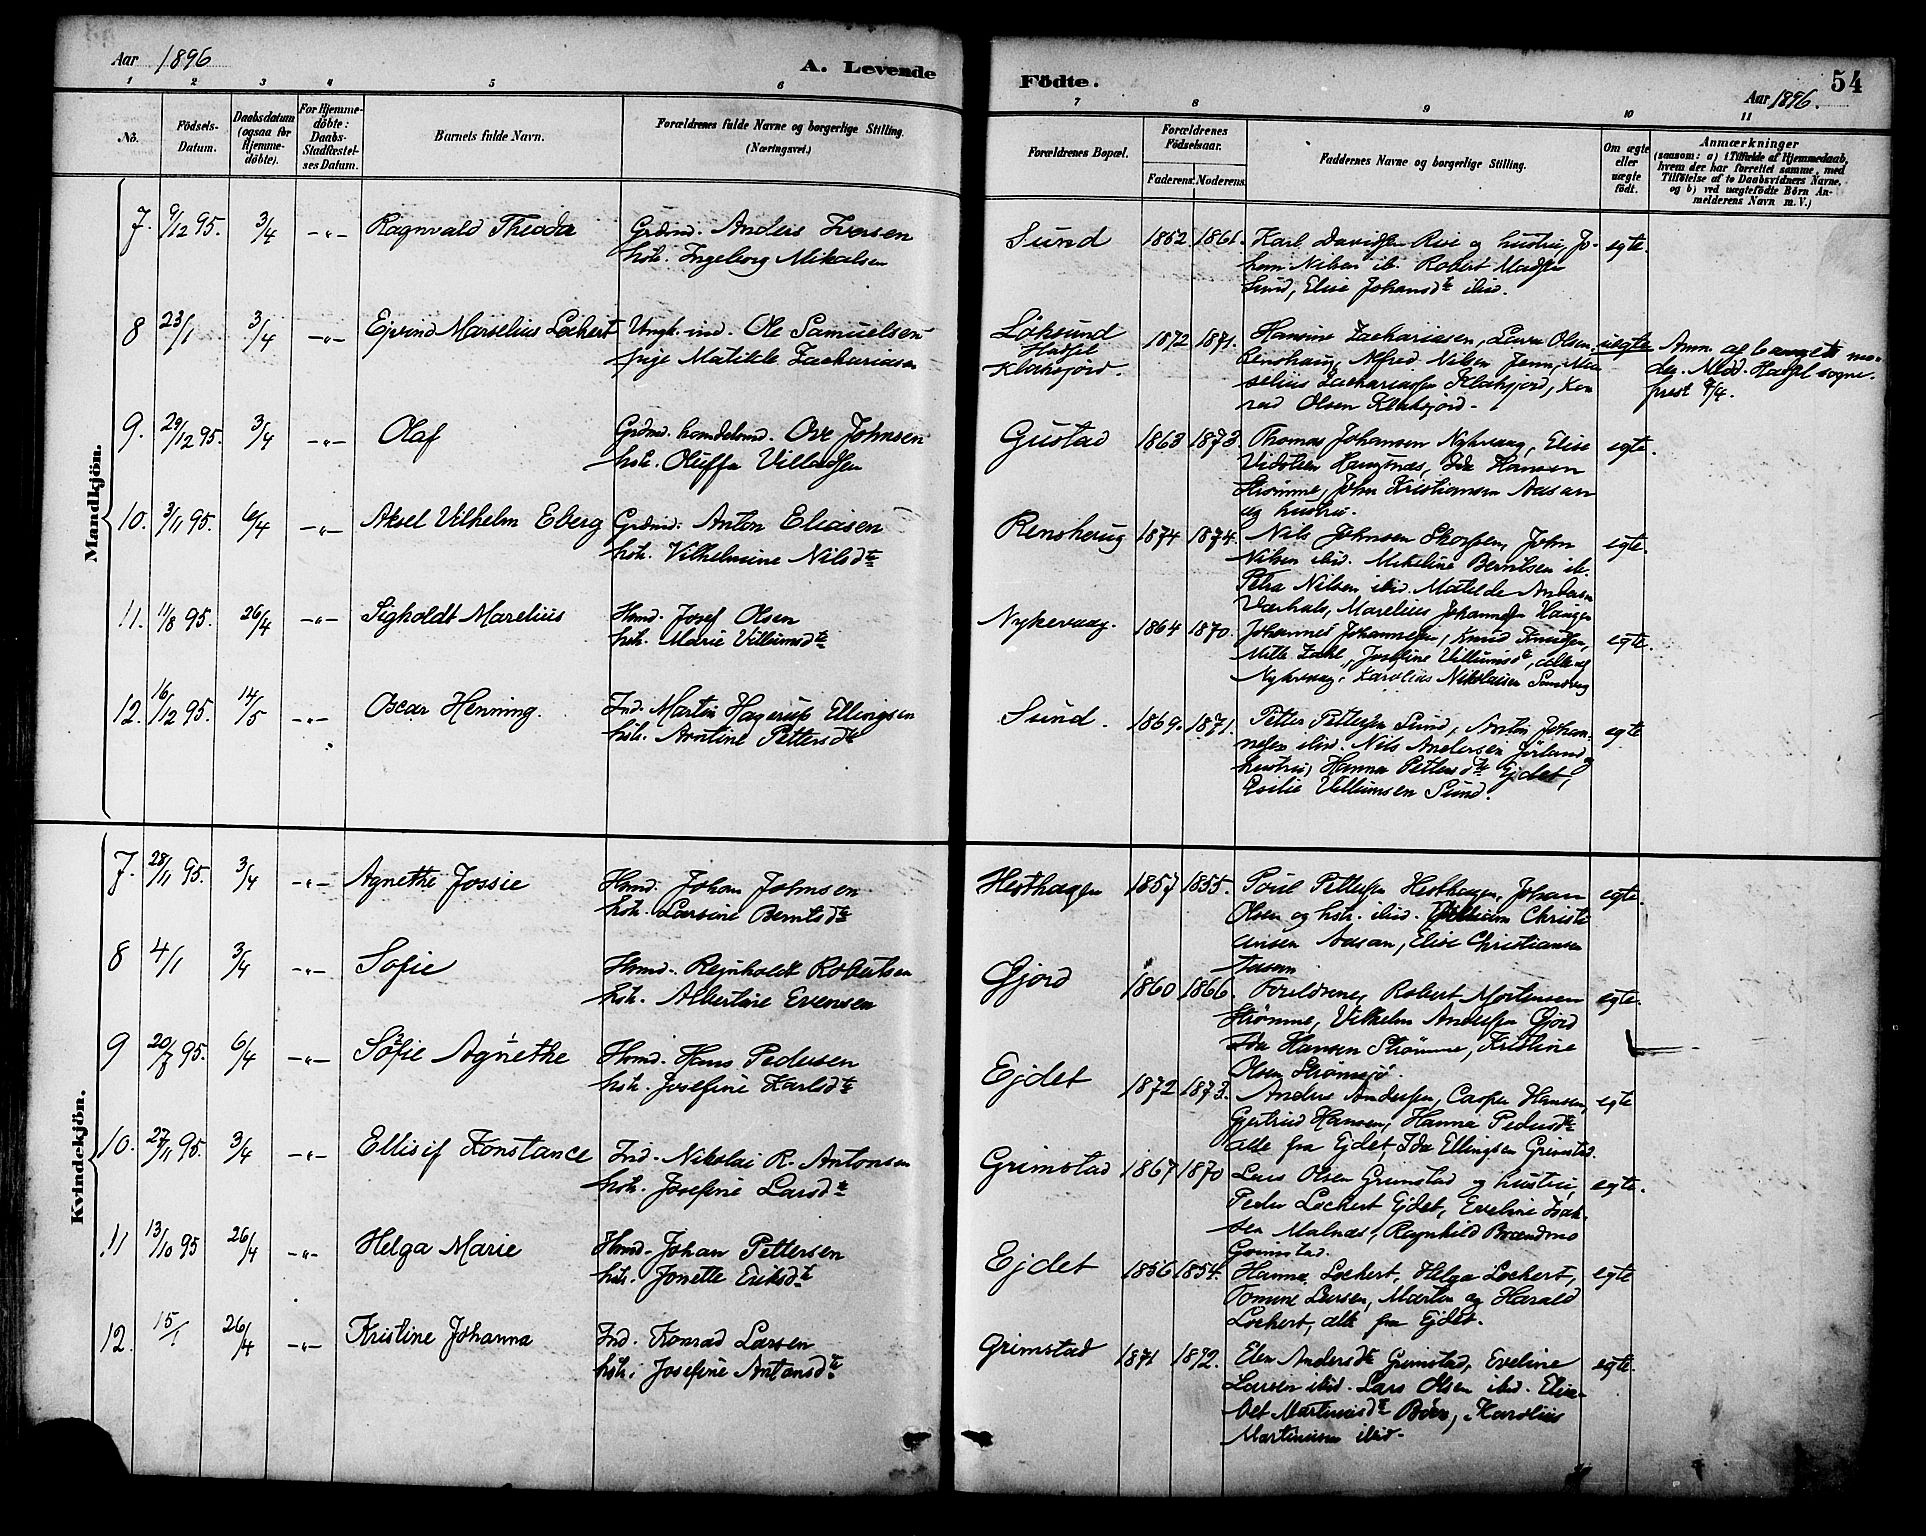 Aar 1896
A. Levende
Födte.
54
Aar 1896.
1 2 3 4 5 6 7 8 9 10 11
No.
Födsels-
Datum.
Daabsdatum
(ogsaa for
Hjemme-
döbte).
For Hjemme-
döbte:
Daabs-
Stadfæstel-
ses Datum.
Barnets fulde Navn.
Forældrenes fulde Navne og borgerlige Stilling.
(Næringsvei.)
Forældrenes Bopæl.
Forældrenes
Födselsaar.
Faderens. Moderens.
Faddernes Navne og borgerlige Stilling.
Om ægte
eller
uægte
födt.
Anmærkninger
(saasom: a) i Tilfælde af Hjemmedaab,
hvem der har forrettet samme, med
Tilföielse af to Daabsvidners Navne,
og b) ved uægtefödte Børn An-
melderens Navn m. V.)
Mandkjön.
7. 9/12 95. 3/4 -"- Ragnvald Theodor
Grdmd. Anders Iversen
hstr. Ingeborg Mikalsen
Sund 1862. 1861.
Karl Davidsen Rise og hustru, Jo-
hem Nilsen ib. Robert Madsen
Sund, Elise Johansdtr ibid.
egte.
8 23/1 3/4 -"- Ejvind Marselius Lochert
Ungk. ind. Ole Samuelsen
pige Matilde Zachariasen
Löksund
Hadsel
Klaksjord.
1872 1871.
Hansine Zachariasen, Laura Olsen,
Renshaug, Alfred Nilsen Jenn, Mar-
selius Zachariassen Klaksjord, Kon-
rad Olsen Klaksjord.
uegte
Anm. af barnets mo-
der. Medd. Hadsel sogne-
prest 7/4.
9. 29/12 95. 3/4 -"- Olaf
Grdmd. handelsmd. Ove Johnsen
hstr. Oluffa Villadsen
Gustad 1863 1873.
Thomas Johansen Nykvaag, Elise
Vidolsen Haugsnæs, Ida Hansen
Strømme, John Kristiansen Aasan
og hustru.
egte.
10. 3/11 95. 6/4 -"- Aksel Vilhelm Eberg
Grdmd. Anton Eliasen
hstr. Vilhelmine Nilsdtr
Renshaug 1874 1874.
Nils Johnsen Skogsøen, John
Nilsen ibid. Mikeline Berntsen ib.
Petra Nilsen ibid. Matilde Andersen
Vaarhals, Marelius Johannesen Haugen
egte.
11. 11/8 95. 26/4 -"- Sigholdt Marelius
Hmd. Josef Olsen
hstr. Marie Villumsdtr
Nykevaag. 1864 1870.
Johannes Johannesen, Knud Knudsen,
Mille Zahl, Josefine Villumsdtr, alle af
Nykvaag. Karolius Nikolaisen Sandvig
egte.
12. 16/12 95. 14/5 -"- Oscar Henning.
Ind. Martin Hagerup Ellingsen
hstr. Arntine Pettersdtr
Sund. 1869. 1871.
Petter Pettersen Sund, Anton Johan-
nesen ibid. Nils Andersen Jørland og
hustru, Hanna Pettersdtr Ejdet,
Emilie Villumsen Sund.
egte
Kvindekjön.
7. 28/11 95. 3/4 -"- Agnethe Jossie
Hmd. Johan Johnsen
hstr. Larsine Berntsdtr
Hesthagen 1857 1855.
Poul Pettersen Hesthagen, Johan
Olsen og hstr. ibid. Vilhelm Christi-
ansen Aasan, Elise Christiansen
Aasan
egte.
8 4/1 3/4 -"- Sofie
Hmd. Rejnholdt Robertsen
hstr. Albertine Evensen
Gjord 1860 1866.
Foreldrene, Robert Mortensen
Strømme, Vilhelm Andersen Gjord
Ida Hansen Strømme, Kristine
Olsen Strømsjö.
egte.
9 20/7 95. 6/4 -"- Sofie Agnethe
Hmd. Hans Pedersen
hstr. Josefine Karlsdtr
Ejdet 1872 1873.
Anders Andersen, Casper Hansen,
Gjertrud Hansen, Hanna Pedersdtr
alle fra Ejdet, Ida Ellingsen Grimstad.
egte
10. 27/11 95. 3/4 -"- Ellisif Konstance
Ind. Nikolai R. Antonsen
hstr. Josefine Larsdtr
Grimstad 1867 1870
Lars Olsen Grimstad og hustru,
Peder Lochert Ejdet, Eveline Isak-
sen Malnæs, Ragnhild Brændmo
Grimstad.
egte.
11 13/10 95 26/4 -"- Helga Marie
Hmd. Johan Pettersen
hstr. Jonette Eriksdtr
Ejdet 1856 1854.
Hanna Lochert, Helga Lochert,
Tomine Larsen, Martin og Harald
Lochert, alle fra Ejdet.
egte
12. 15/1 26/4 -"- Kristine Johanna
Ind. Konrad Larsen
hstr. Josefine Antonsdtr
Grimstad 1871 1872.
Elen Andersdtr Grimstad, Eveline
Larsen ibid. Lars Olsen ibid. Elisa-
bet Martinusdtr Bøen, Karolius
Martinusen ibid.
egte.